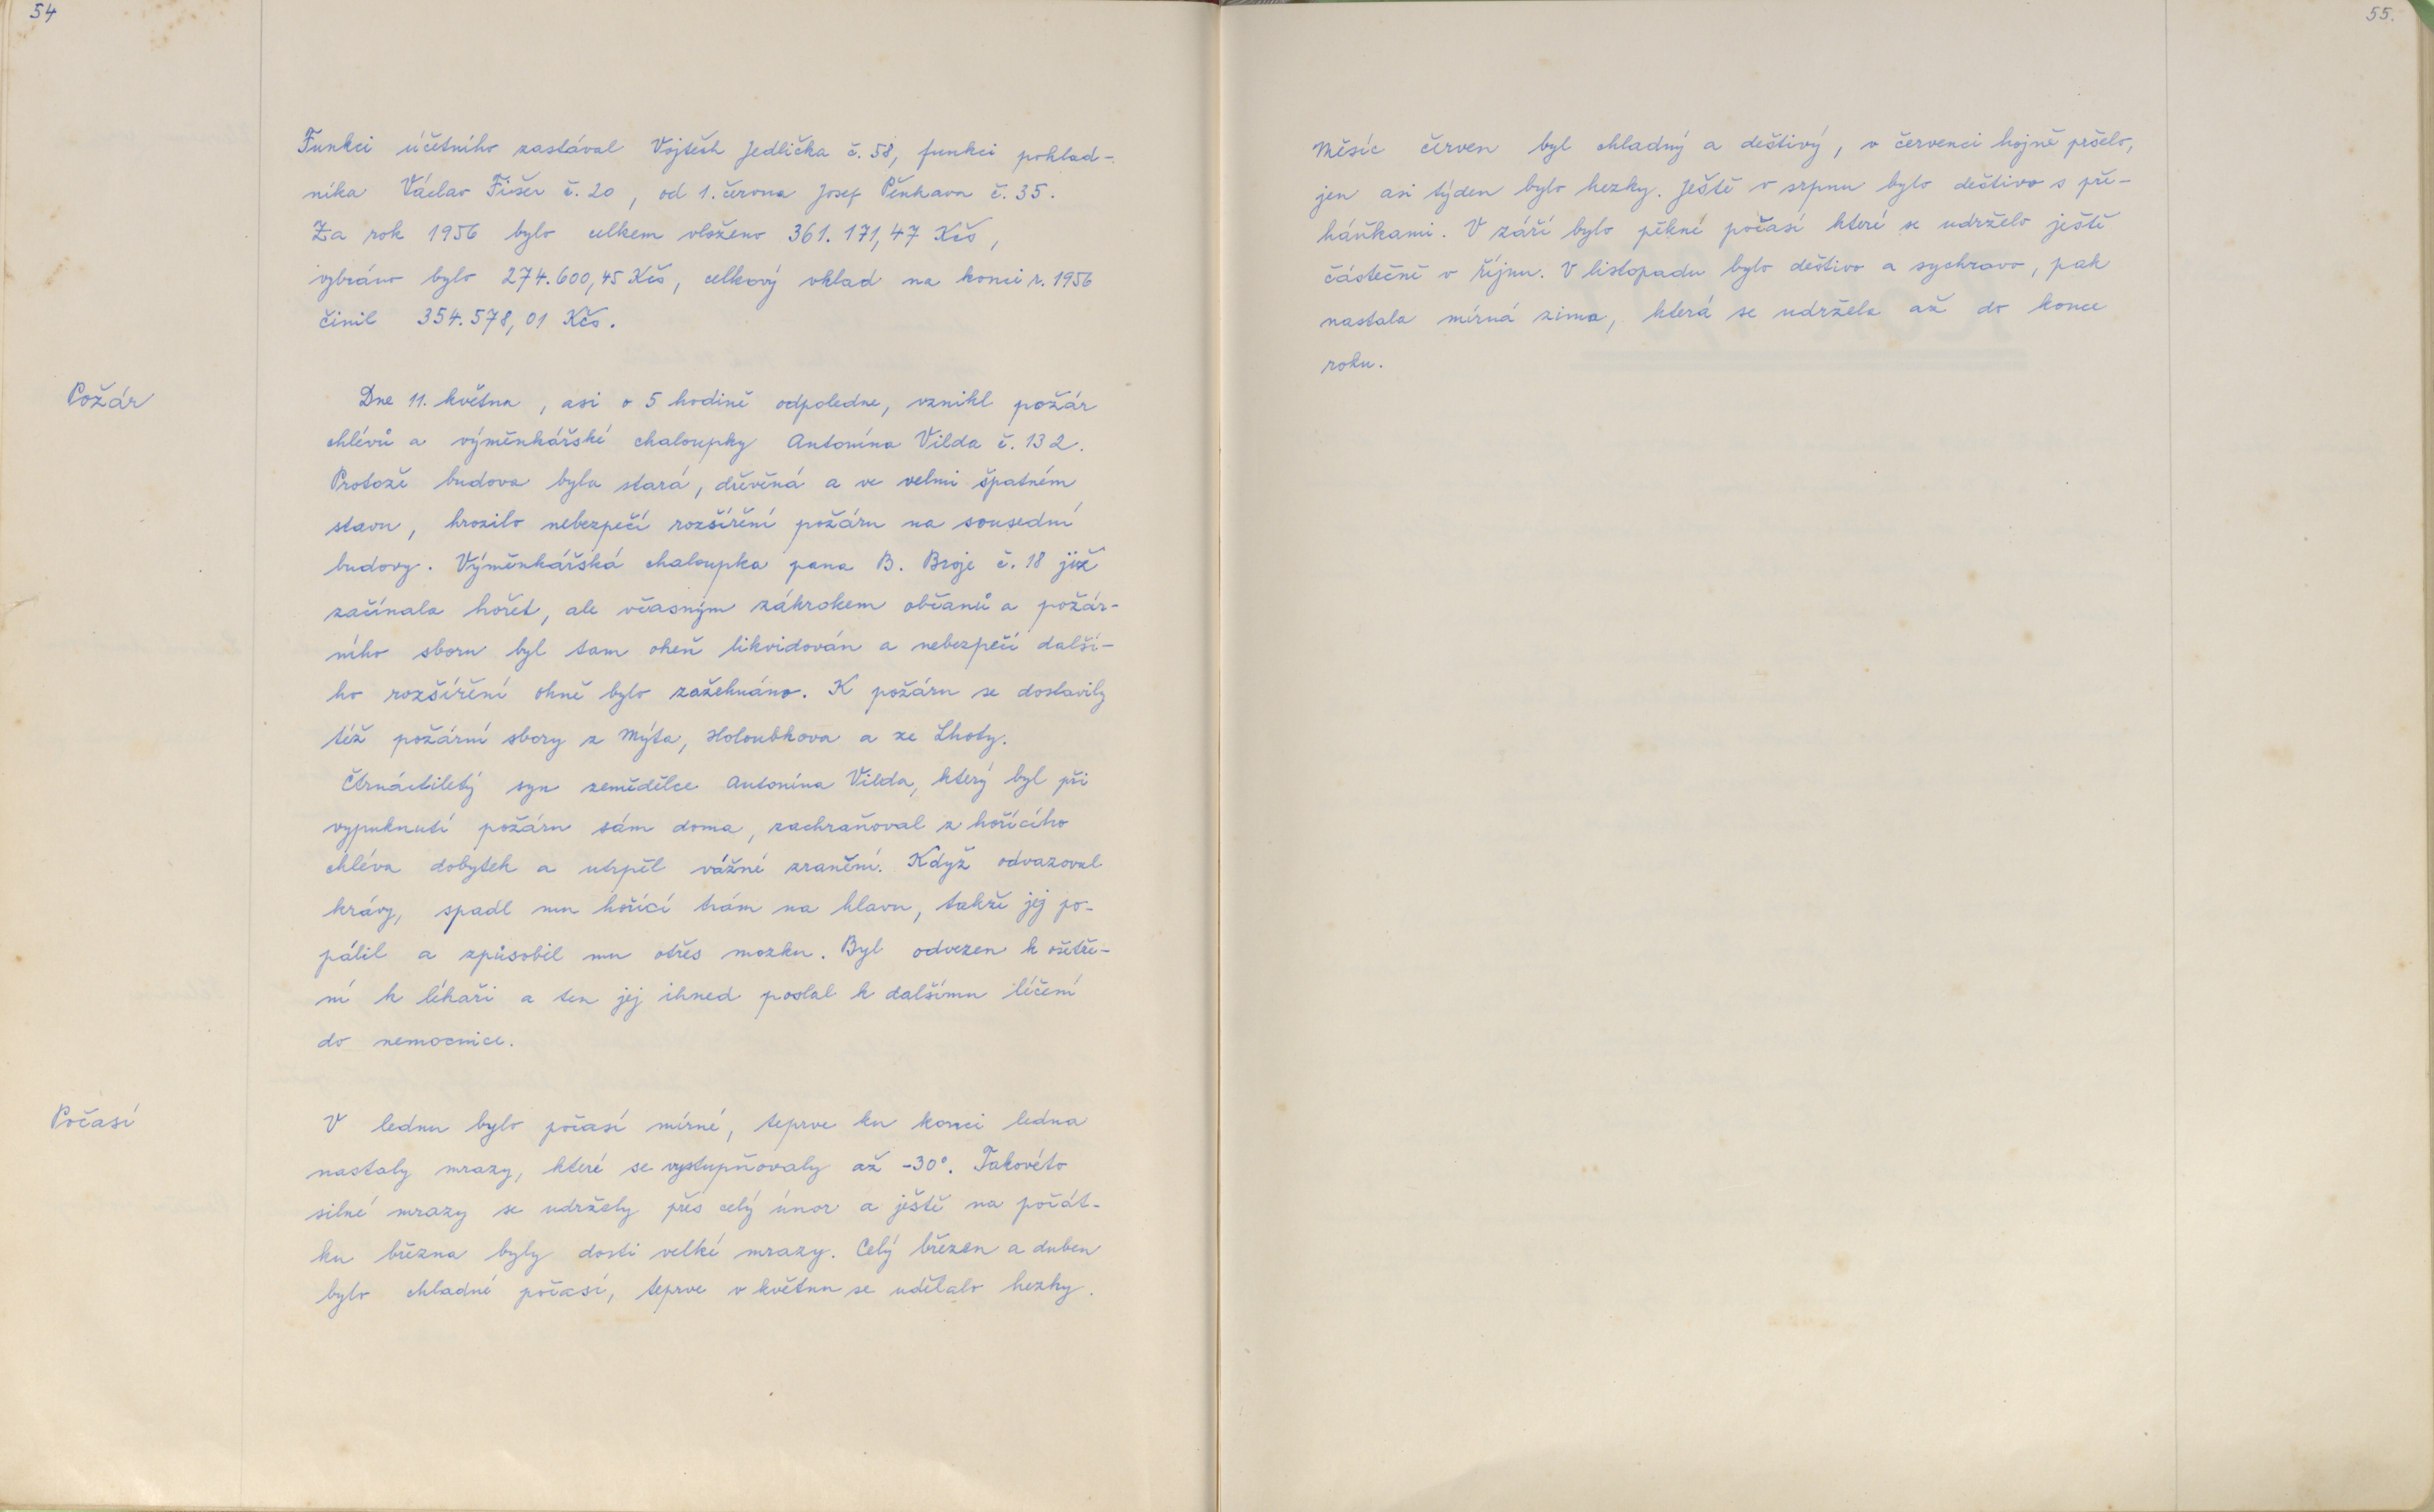 54
Funkci účetního zastával Vojtěch Jedlička č. 58, funkci poklad-
níka Václav Fišer č. 20, od 1. června Josef Pěnkava č. 35.
Za rok 1956 bylo celkem vloženo 361.171,47 Kčs,
vybráno bylo 274.600,45 Kčs, celkový vklad na konci r. 1956
činil 354.578,01 Kčs.
Požár
Dne 11. května, asi o 5 hodině odpoledne, vznikl požár
chlévů a výměnkářské chaloupky Antonína Vilda č. 132.
Protože budova byla stará, dřevěná a ve velmi špatném
stavu, hrozilo nebezpečí rozšíření požáru na sousední
budovy. Výměnkářská chaloupka pana B. Broje č. 18 již
začínala hořet, ale včasným zákrokem občanů a požár-
ního sboru byl tam oheň likvidován a nebezpečí další-
ho rozšíření ohně bylo zažehnáno. K požáru se dostavily
též požární sbory z Mýta, Holoubkova a ze Lhoty.
Čtrnáctiletý syn zemědělce Antonína Vilda, který byl při
vypuknutí požáru sám doma, zachraňoval z hořícího
chléva dobytek a utrpěl vážné zranění. Když odvazoval
krávy, spadl mu hořící trám na hlavu, takže jej po-
pálil a způsobil mu otřes mozku. Byl odvezen k ošetře-
ní k lékaři a ten jej ihned poslal k dalšímu léčení
do nemocnice.
Počasí
V lednu bylo počasí mírné, teprve ku konci ledna
nastaly mrazy, které se vystupňovaly až -30°. Takovéto
silné mrazy se udržely přes celý únor a ještě na počát-
ku března byly dosti velké mrazy. Celý březen a duben
bylo chladné počasí, teprve v květnu se udělalo hezky.
55.
Měsíc červen byl chladný a deštivý, v červenci hojně pršelo,
jen asi týden bylo hezky. Ještě v srpnu bylo deštivo s pře-
háňkami. V září bylo pěkné počasí které se udrželo ještě
částečně v říjnu. V listopadu bylo deštivo a sychravo, pak
nastala mírná zima, která se udržela až do konce
roku.